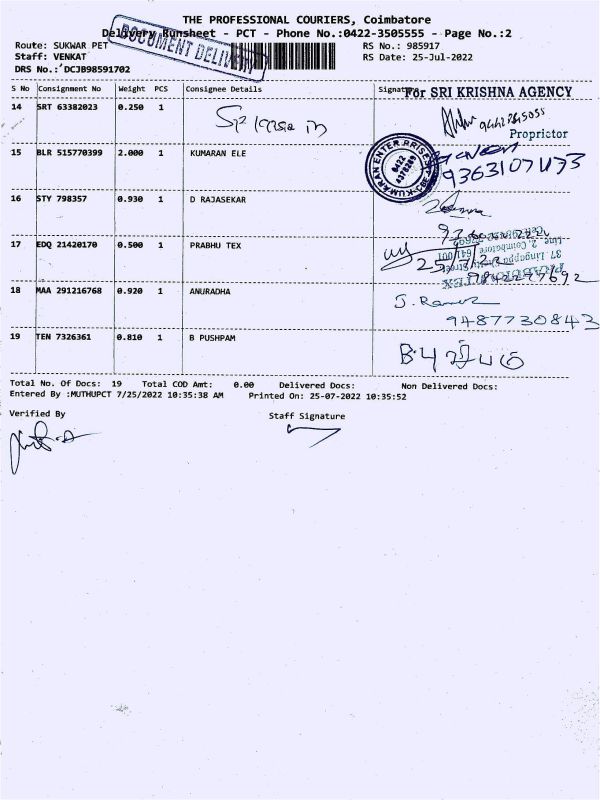 THE PROFESSIONAL COURIERS, Coimbatore
Delivery Runsheet - PCT - Phone No.:0422-3505555 - Page No.:2
DOCUMENT DELIVERY
Route: SUKWAR PET RS No.: 985917
Staff: VENKAT RS Date: 25-Jul-2022
DRS No.: DCJB98591702
S No Consignment No Weight PCS Consignee Details Signature
For SRI KRISHNA AGENCY
14 SRT 63382023 0.250 1
Proprictor
15 BLR 515770399 2.000 1 KUMARAN ELE
KUMARAN ENTERPRISES
0422
9363107473
16 STY 798357 0.930 1 D RAJASEKAR
17 EDQ 21420170 0.500 1 PRABHU TEX
37, Lingappa
Line, 2, Coimbatore 641 001
9842277692
18 MAA 291216768 0.920 1 ANURADHA
9487730843
19 TEN 7326361 0.810 1 B PUSHPAM
Total No. Of Docs: 19 Total COD Amt: 0.00 Delivered Docs: Non Delivered Docs:
Entered By :MUTHUPCT 7/25/2022 10:35:38 AM Printed On: 25-07-2022 10:35:52
Verified By Staff Signature